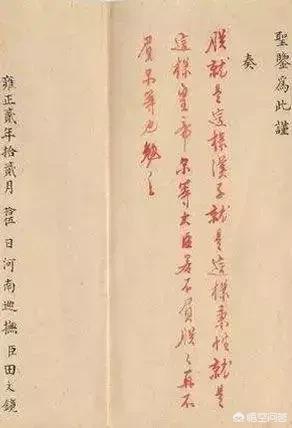 聖鑒爲此謹
奏
朕就是這樣漢子就是這樣秉性就是
這樣皇帝尔等大臣若不負朕朕再不
負尔等也勉之
雍正貳年拾貳月拾伍日河南巡撫臣田文鏡
悟空问答